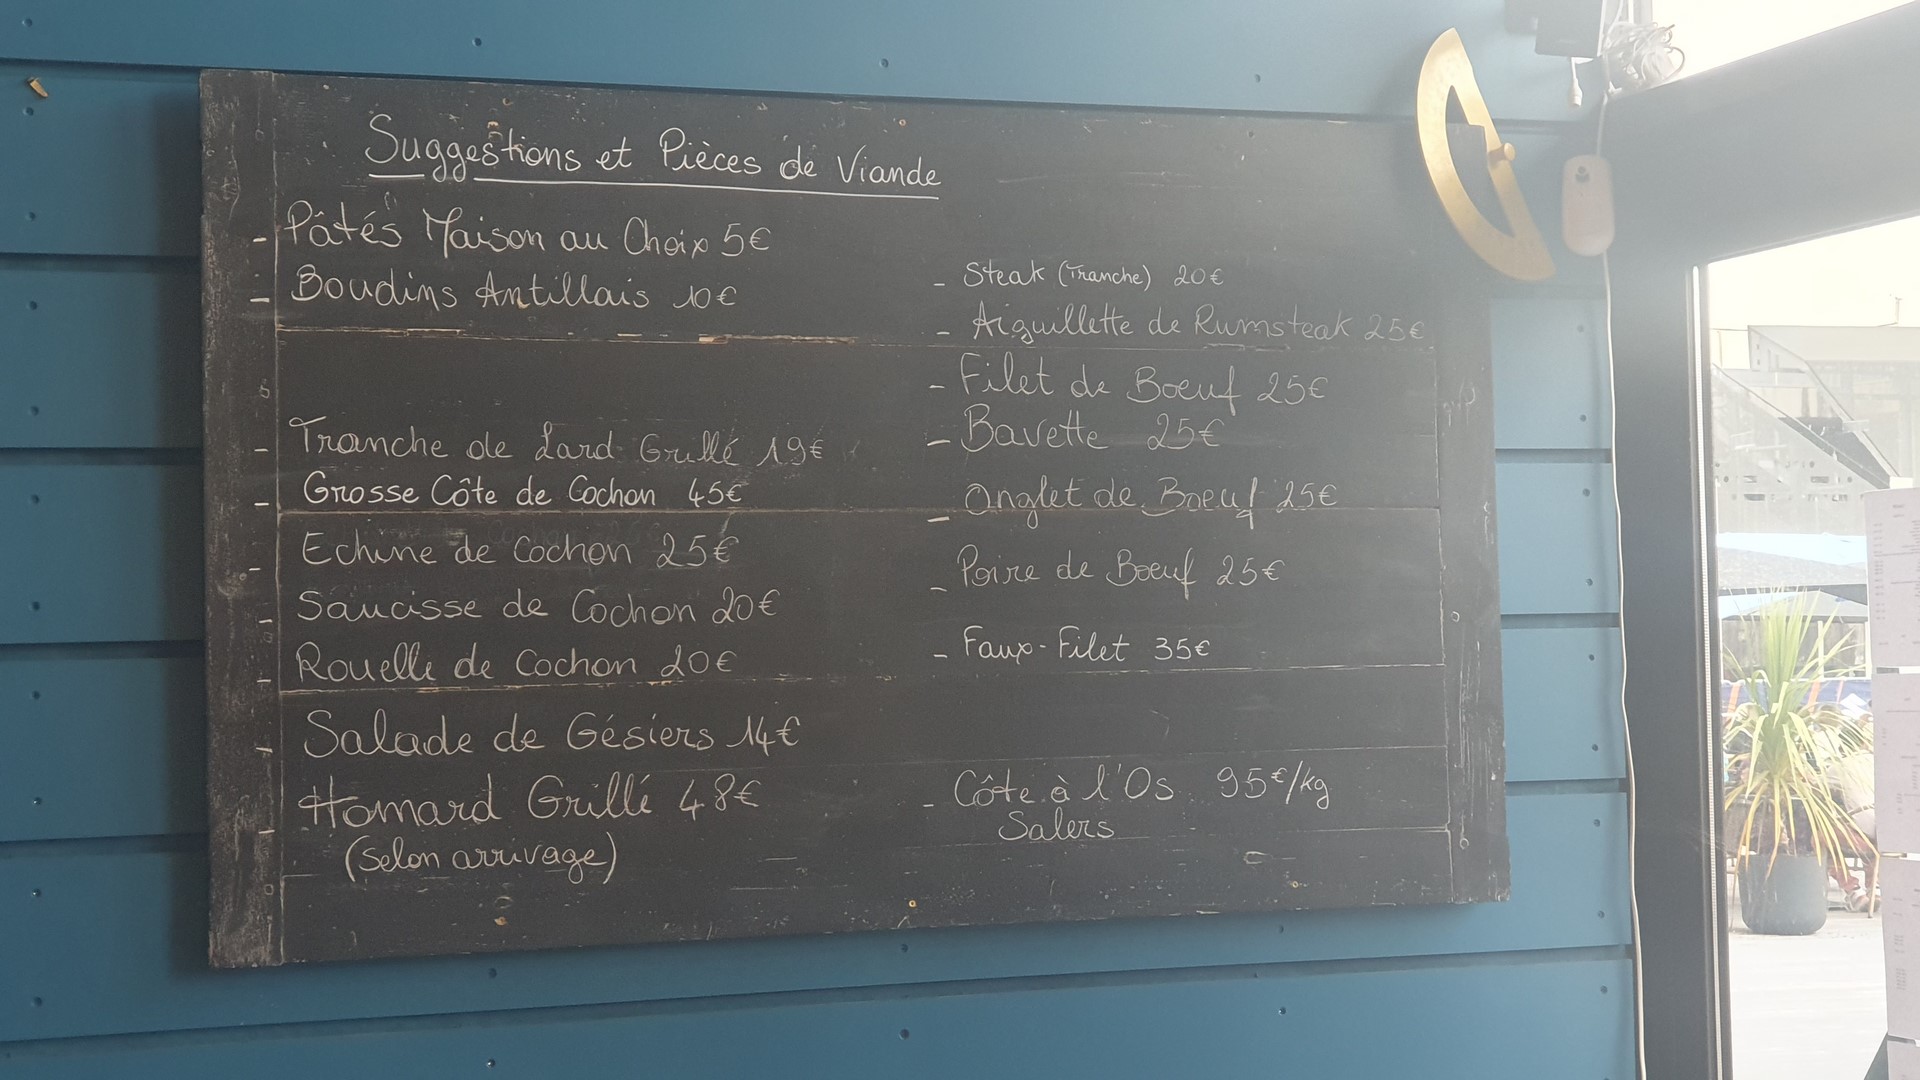 Suggestions et Pièces de Viande
- Pâtés Maison au Choix 5€
- Boudins Antillais 10€
- Tranche de Lard Grillé 19€
- Grosse Côte de Cochon 45€
- Echine de Cochon 25€
- Saucisse de Cochon 20€
- Rouelle de Cochon 20€
- Salade de Gésiers 14€
- Homard Grillé 48€
(selon arrivage)
- Steak (Tranche) 20€
- Aiguillette de Rumsteak 25€
- Filet de Boeuf 25€
- Bavette 25€
- Onglet de Boeuf 25€
- Poire de Boeuf 25€
- Faux-Filet 35€
- Côte à l'Os 95€/kg
Salers